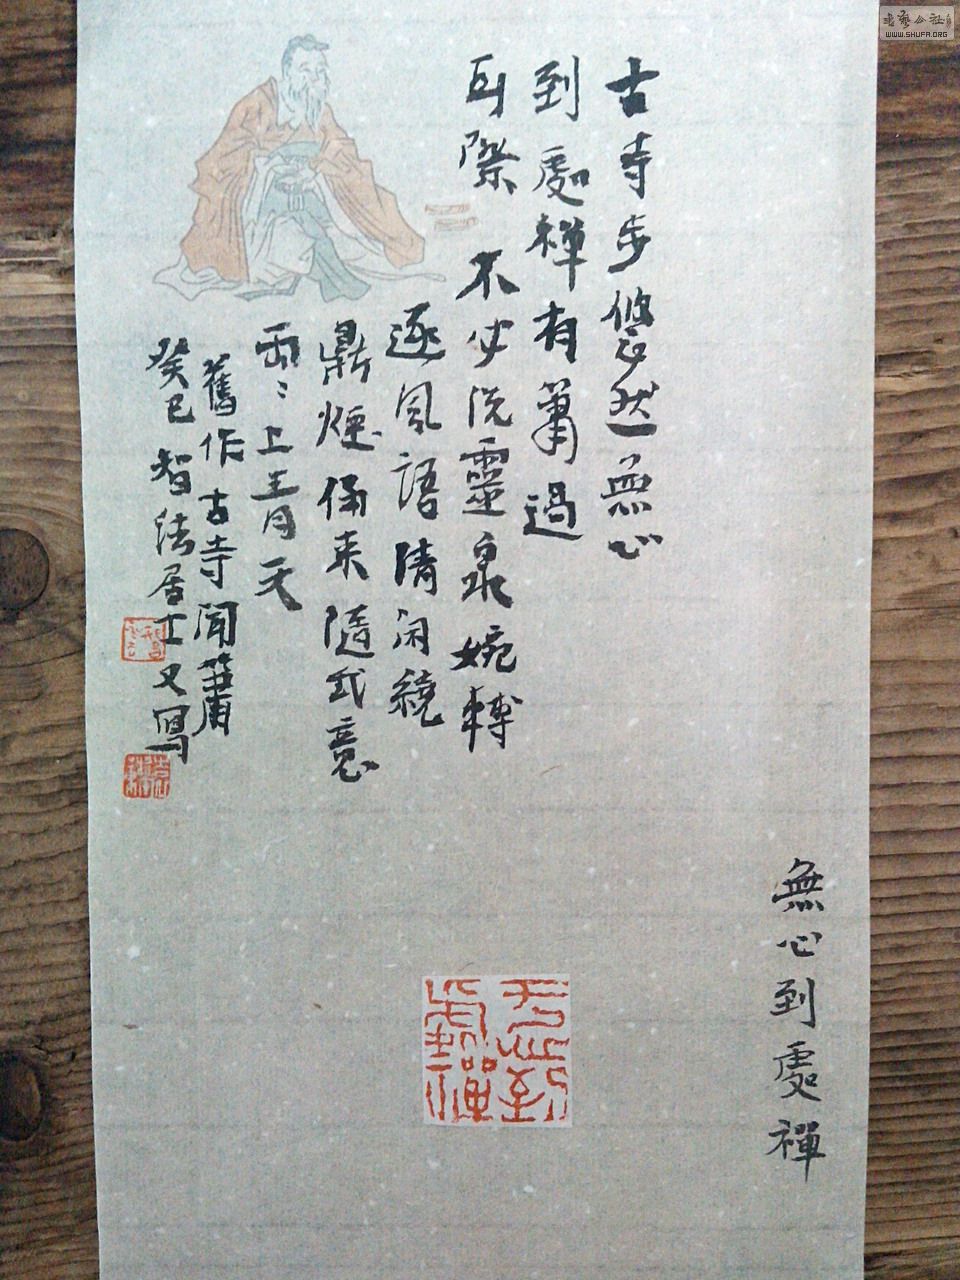 古寺步悠然無心
到處禪有簫過
耳際不必洗靈泉婉轉
逐風語清潤繞
鼎煙俑來隨我意
雨〻上青天
舊作古寺聞簫
癸巳智法居士又寫
無心到處禪
無心到處禪
WWW.SHUFA.ORG